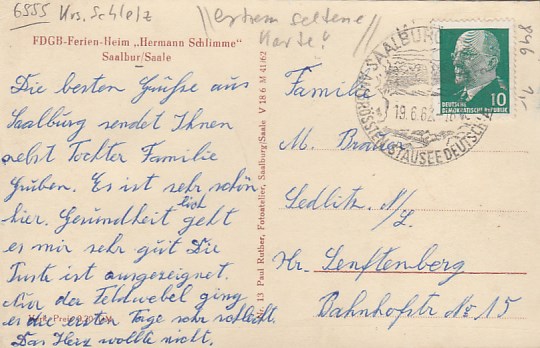 6555 Krs. Schleiz
extrem seltene
Karte!
846
FDGB-Ferien-Heim „Hermann Schlimme"
Saalbur/Saale
Die besten Grüße aus
Saalburg sendet Ihnen
nebst Tochter Familie
Gruben. Es ist sehr schön
hier. Gesundheitlich geht
es mir sehr gut Die
Luft ist ausgezeignet.
Nur der Feldwebel ging
es die ersten Tage sehr schlecht.
Das Herz wollte nicht.
Nr. 13 Paul Ruther, Fotoatelier, Saalburg/Saale V 18 6 M 41/62
SAALBURG
19.6.62
STAUSEE DEUTSCH
DEUTSCHE
DEMOKRATISCHE REPUBLIK
10
Familie
M.
Sedlitz N/L.
Kr. Senftenberg
Bahnhofstr No 15